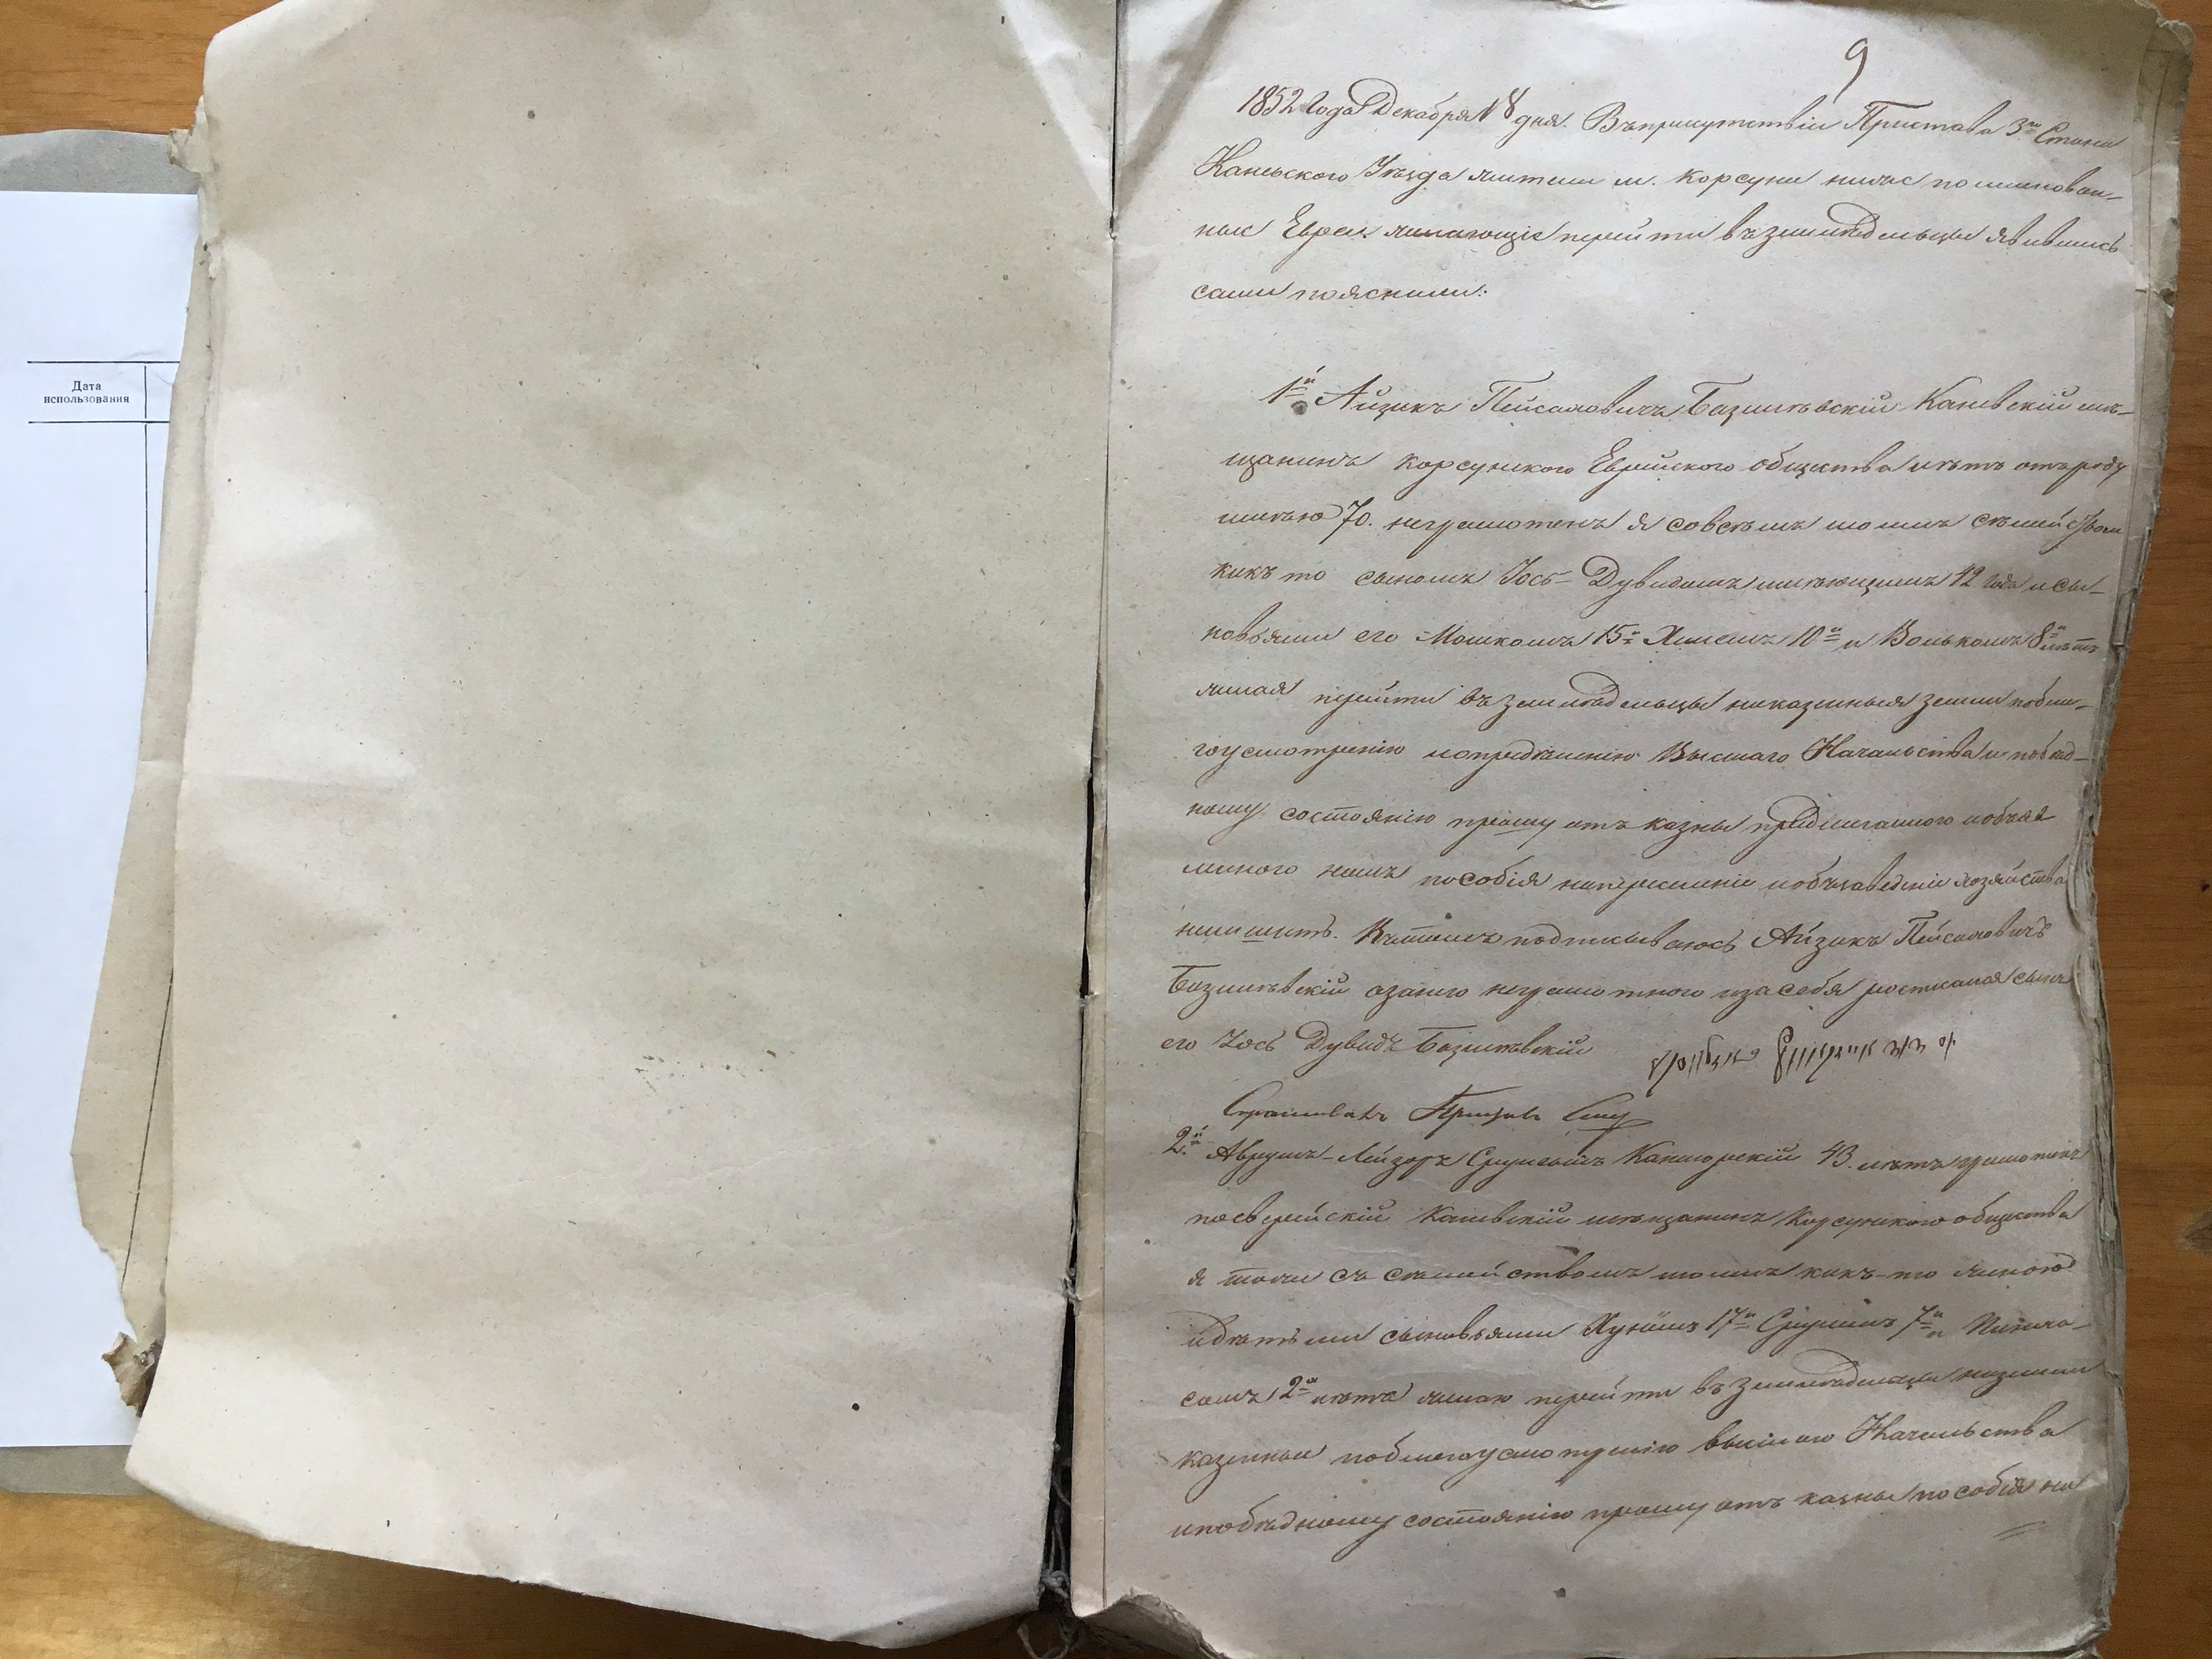 Дата
использования
9
1852 года Декабря 18 дня. Въ присутствіи Пристава 3го Стана
Каневского Уѣзда жители м. Корсуня ниже поименован-
ные Евреи желающіе перейти въ земледѣльцы явившись
сами пояснили:
1й Айзикъ Пейсаховичъ Базилѣвскій Каневскій мѣ-
щанинъ Корсунского Еврейского общества лѣтъ отъ роду
имѣю 70. неграмотенъ я совсѣмъ моимъ семействомъ
какъ то сыномъ Іось-Дувидомъ имѣющимъ 42 года и сы-
новьями его Мошкомъ 15й 10й и Волькомъ 8й лѣтъ
желая перейти въ земледѣльцы на казенныя земли по бла-
гоусмотренію Высшаго Начальства и по бед-
ному состоянію прошу отъ казны
намъ пособія на переселеніе и обзаведеніе хозяйства
Въ томъ подписываюсь Айзикъ Пейсаховичъ
Базилѣвскій а за него неграмотного и за себя росписался сынъ
его Іось Дувидъ Базилѣвскій
Спрашивалъ Приставъ
2й Аврумъ-Лейзоръ Сруліовичъ Каніорскій 43. лѣтъ грамотенъ
поеврейскій Каневскій мѣщанинъ Корсунского общества
я тоже съ семействомъ моимъ какъ-то женою
и дѣтьми сыновьями 17й Сруліомъ 7й и Пинха-
сомъ 2й лѣтъ желаю перейти въ земледѣльцы на земли
казенныи по благоусмотренію высшаго Начальства
и по бѣдному состоянію прошу отъ казны пособія на